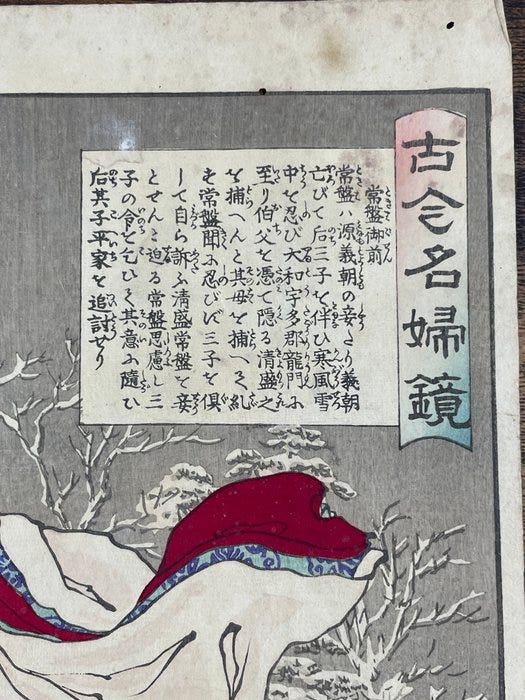 古今名婦鏡
常盤御前
常盤ハ源義朝の妾たり義朝
亡びて后三子を伴ひ寒風雪
中を忍び大和宇多郡龍門に
至り伯父を憑て隠る清盛之
を捕へんと其母を捕へて糺
す常盤聞に忍びず三子を倶
して自ら訴ふ清盛常盤を妾
とせんと迫る常盤思慮し三
子の命を乞ひて其意に随ひ
后其子平家を追討せり